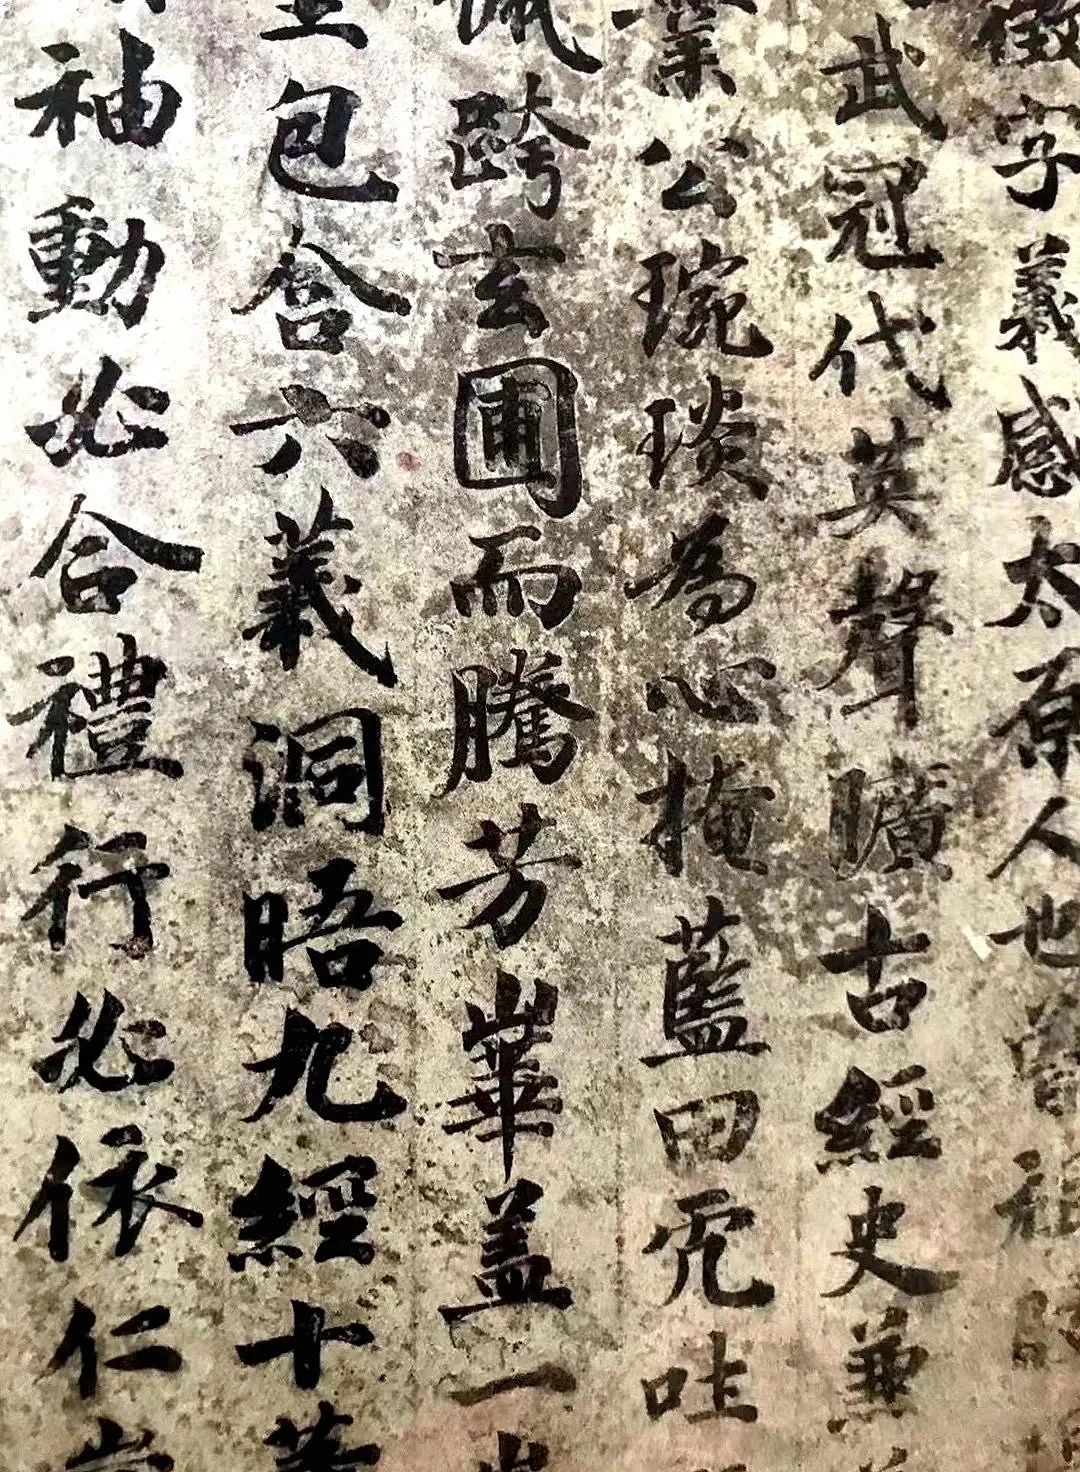 徵字義感太原人也曾祖
武冠代英聲曠古經史兼
業公琬琰為心掩藍田而吐
佩跨玄圃而騰芳崋蓋一
包含六義洞晤九經十
袖動必合禮行必依仁